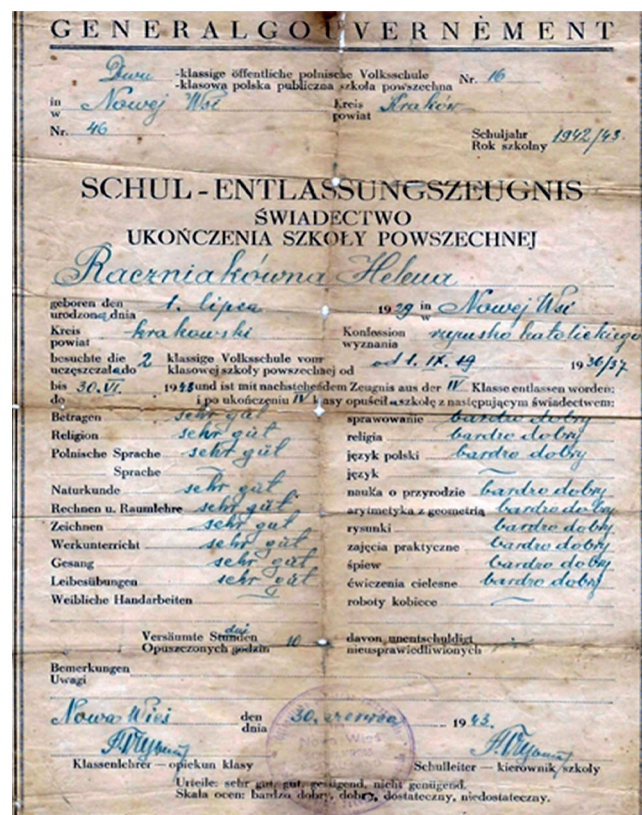 GENERALGOUVERNEMENT
Dwu -klassige öffentliche polnische Volksschule Nr. 16
-klasowa polska publiczna szkoła powszechna
in Nowej Wsi Kreis Kraków
w powiat
Nr. 46
Schuljahr 1942/43.
Rok szkolny
SCHUL-ENTLASSUNGSZEUGNIS
ŚWIADECTWO
UKOŃCZENIA SZKOŁY POWSZECHNEJ
Raczniakówna Helena
geboren den 1. lipca 1929 in Nowej Wsi
urodzona dnia w
Kreis krakowski Konfession rzymsko katolickiego
powiat wyznania
besuchte die 2 klassige Volksschule vom od 1. IX. 19 1936/37
uczęszczała do klasowej szkoły powszechnej od
bis 30. VI. 1943 und ist mit nachstehendem Zeugnis aus der IV Klasse entlassen worden:
do i po ukończeniu IV klasy opuścił a szkołę z następującym świadectwem:
Betragen sehr gut sprawowanie bardzo dobry
Religion sehr gut religia bardzo dobry
Polnische Sprache sehr gut język polski bardzo dobry
Sprache — język —
Naturkunde sehr gut nauka o przyrodzie bardzo dobry
Rechnen u. Raumlehre sehr gut arytmetyka z geometrią bardzo dobry
Zeichnen sehr gut rysunki bardzo dobry
Werkunterricht sehr gut zajęcia praktyczne bardzo dobry
Gesang sehr gut śpiew bardzo dobry
Leibesübungen sehr gut ćwiczenia cielesne bardzo dobry
Weibliche Handarbeiten — roboty kobiece —
dni
Versäumte Stunden 10 davon unentschuldigt
Opuszczonych godzin nieusprawiedliwionych
Bemerkungen
Uwagi
Nowa Wieś den 30. czerwca 1943.
dnia
Klassenlehrer — opiekun klasy Schulleiter — kierownik szkoły
Urteile: sehr gut, gut, genügend, nicht genügend.
Skala ocen: bardzo dobry, dobry, dostateczny, niedostateczny.